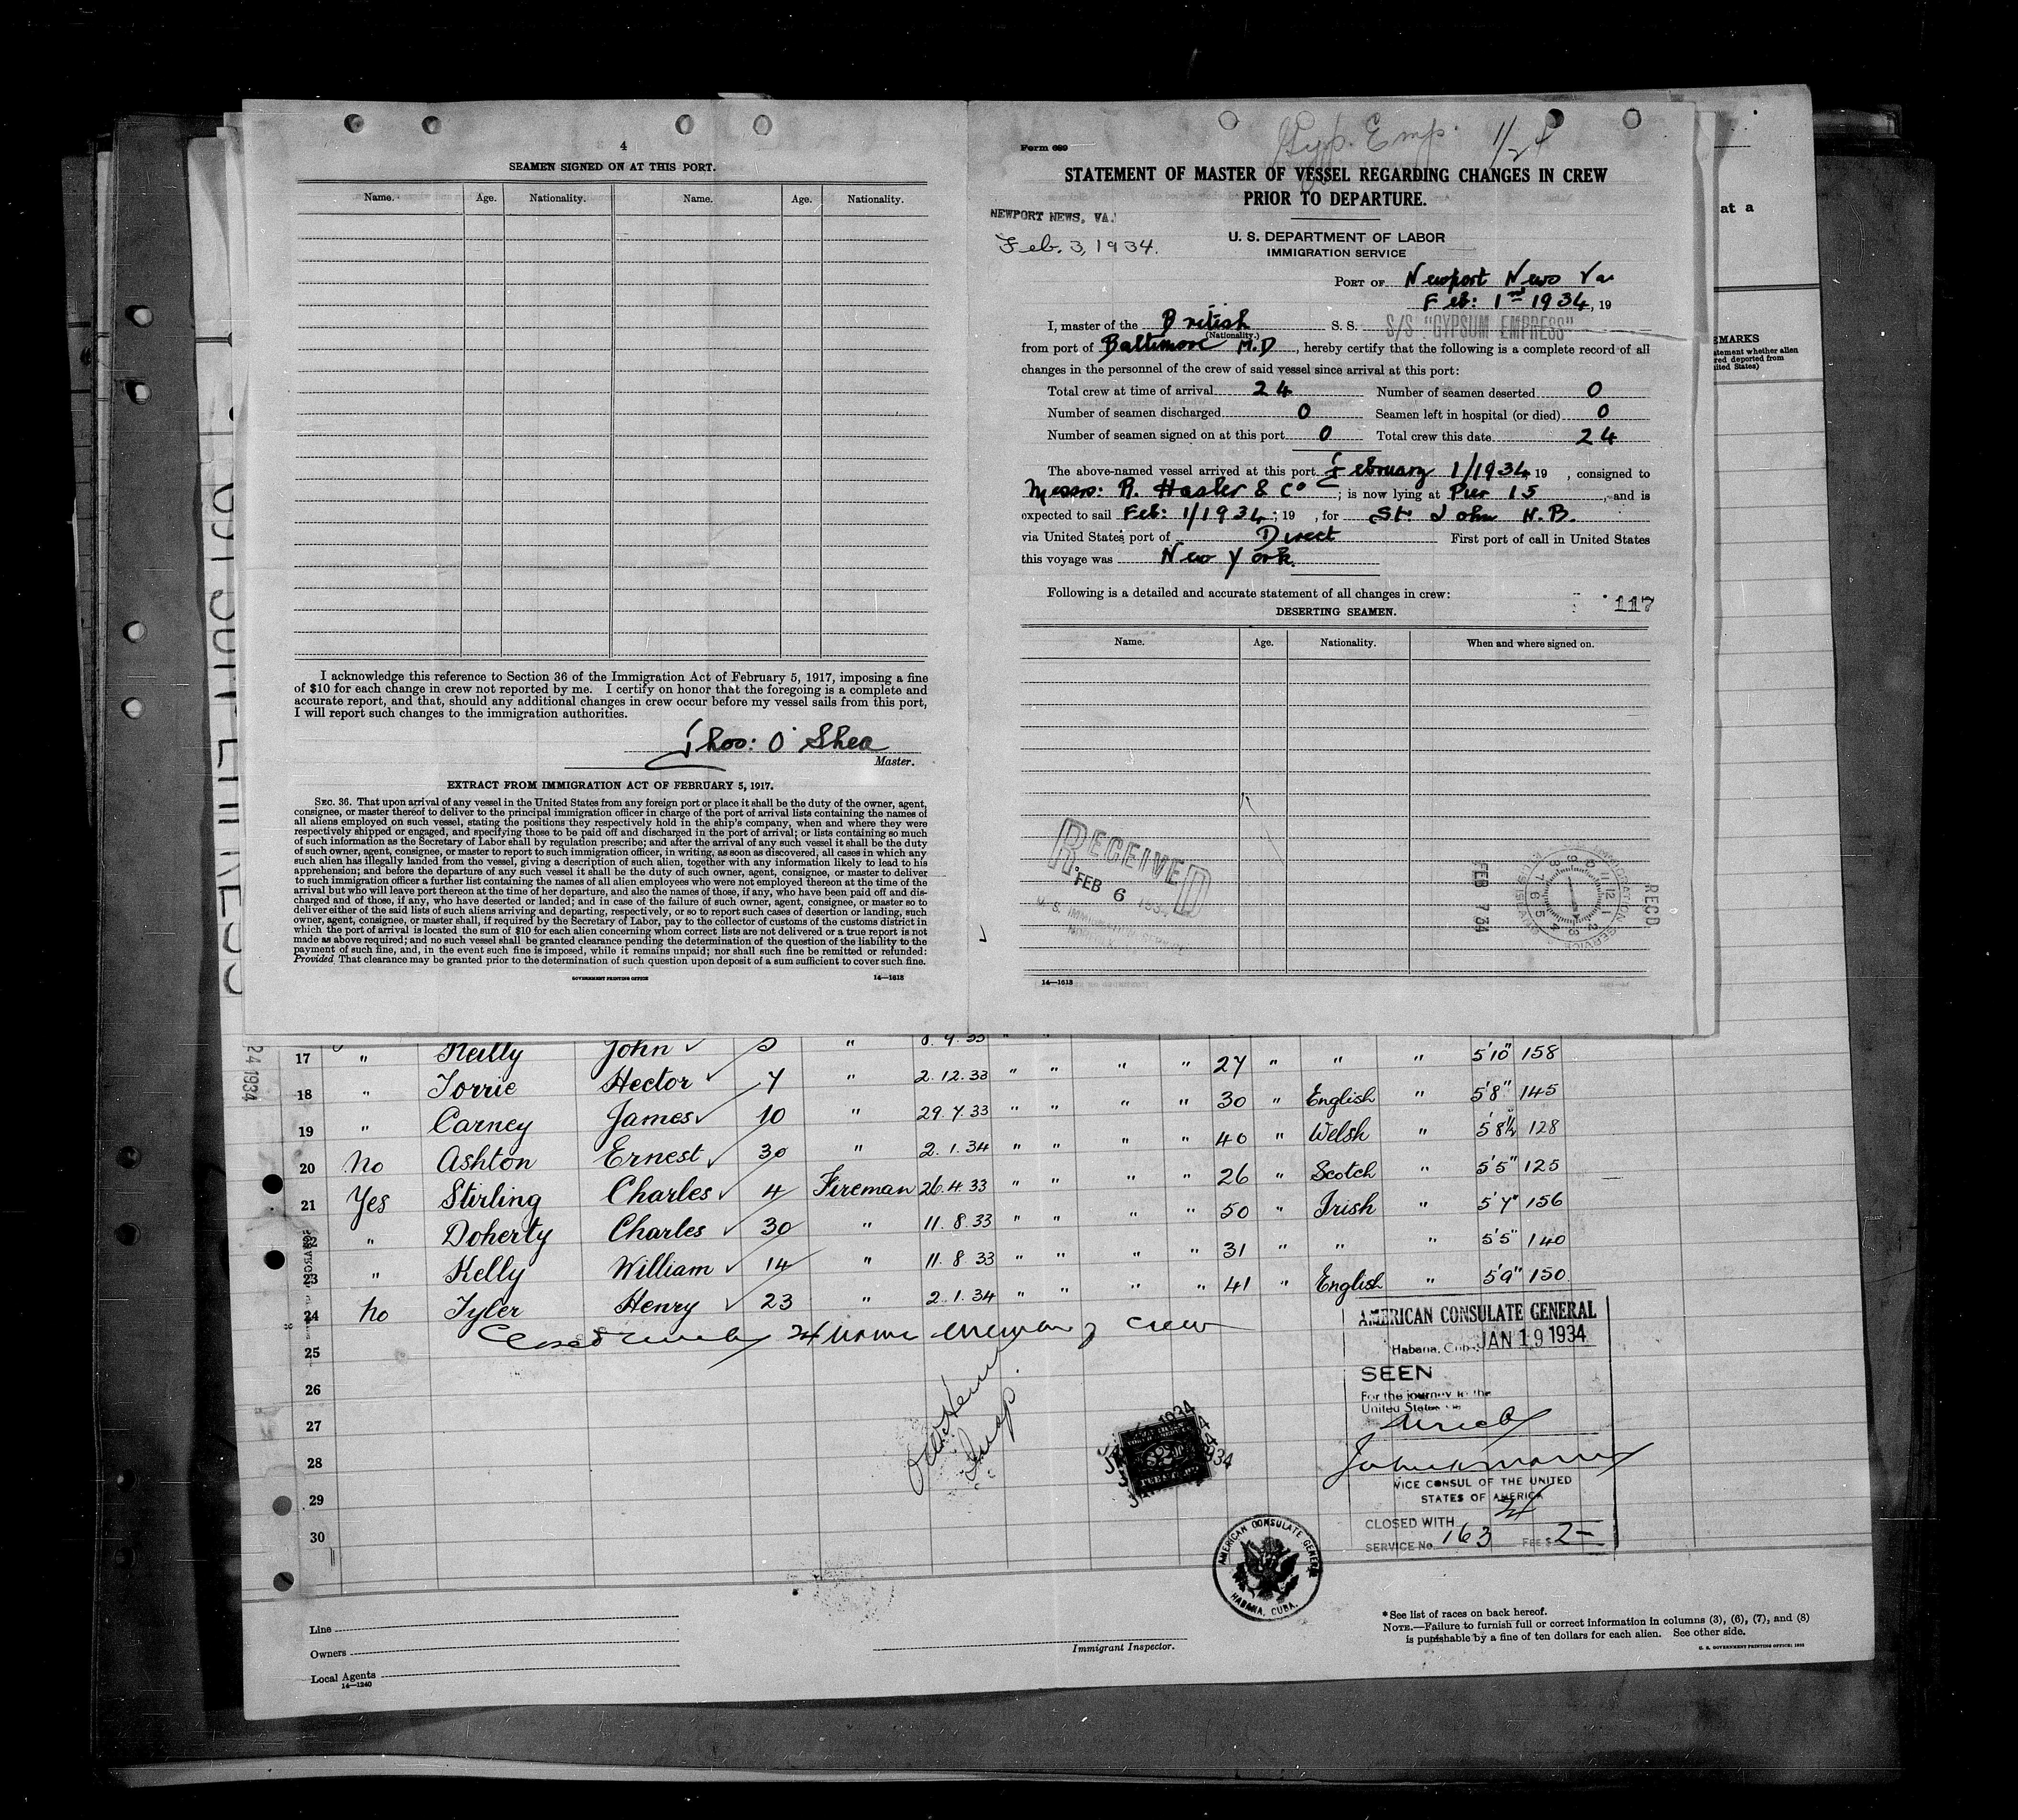 4
SEAMEN SIGNED ON AT THIS PORT.
Name. Age. Nationality. Name. Age. Nationality.
I acknowledge this reference to Section 36 of the Immigration Act of February 5, 1917, imposing a fine
of $10 for each change in crew not reported by me. I certify on honor that the foregoing is a complete and
accurate report, and that, should any additional changes in crew occur before my vessel sails from this port,
I will report such changes to the immigration authorities.
Thos: O'Shea
Master.
EXTRACT FROM IMMIGRATION ACT OF FEBRUARY 5, 1917.
SEC. 36. That upon arrival of any vessel in the United States from any foreign port or place it shall be the duty of the owner, agent,
consignee, or master thereof to deliver to the principal immigration officer in charge of the port of arrival lists containing the names of
all aliens employed on such vessel, stating the positions they respectively hold in the ship's company, when and where they were
respectively shipped or engaged, and specifying those to be paid off and discharged in the port of arrival; or lists containing so much
of such information as the Secretary of Labor shall by regulation prescribe; and after the arrival of any such vessel it shall be the duty
of such owner, agent, consignee, or master to report to such immigration officer, in writing, as soon as discovered, all cases in which any
such alien has illegally landed from the vessel, giving a description of such alien, together with any information likely to lead to his
apprehension; and before the departure of any such vessel it shall be the duty of such owner, agent, consignee, or master to deliver
to such immigration officer a further list containing the names of all alien employees who were not employed thereon at the time of the
arrival but who will leave port thereon at the time of her departure, and also the names of those, if any, who have been paid off and dis-
charged and of those, if any, who have deserted or landed; and in case of the failure of such owner, agent, consignee, or master so to
deliver either of the said lists of such aliens arriving and departing, respectively, or so to report such cases of desertion or landing, such
owner, agent, consignee, or master shall, if required by the Secretary of Labor, pay to the collector of customs of the customs district in
which the port of arrival is located the sum of $10 for each alien concerning whom correct lists are not delivered or a true report is not
made as above required; and no such vessel shall be granted clearance pending the determination of the question of the liability to the
payment of such fine, and, in the event such fine is imposed, while it remains unpaid; nor shall such fine be remitted or refunded:
Provided, That clearance may be granted prior to the determination of such question upon deposit of a sum sufficient to cover such fine.
GOVERNMENT PRINTING OFFICE 14—1613
Gyp. Emp. 1/24
Form 689
STATEMENT OF MASTER OF VESSEL REGARDING CHANGES IN CREW
PRIOR TO DEPARTURE.
NEWPORT NEWS, VA.
Feb. 3, 1934.
U. S. DEPARTMENT OF LABOR
IMMIGRATION SERVICE
PORT OF Newport News Va
Feb: 1st 1934, 19
I, master of the British S. S. S/S "GYPSUM EMPRESS"
(Nationality.)
from port of Baltimore M.D, hereby certify that the following is a complete record of all
changes in the personnel of the crew of said vessel since arrival at this port:
Total crew at time of arrival 24 Number of seamen deserted 0
Number of seamen discharged 0 Seamen left in hospital (or died) 0
Number of seamen signed on at this port 0 Total crew this date 24
The above-named vessel arrived at this port February 1/1934, 19 , consigned to
Messrs: R. Hasler & Co ; is now lying at Pier 15, and is
expected to sail Feb: 1/1934; 19 , for St. John N.B.
via United States port of Direct First port of call in United States
this voyage was New York.
Following is a detailed and accurate statement of all changes in crew:
117
DESERTING SEAMEN.
Name. Age. Nationality. When and where signed on.
RECEIVED
FEB 6 1934
U. S. IMMIGRATION SERVICE
FEB 7 34
RECD
14—1613
at a
EMARKS
24 1934
17 " Reilly John 27 " " " 5'10" 158
18 " Torrie Hector 7 " 2.12.33 " " " " 30 " English " 5'8" 145
19 " Carney James 10 " 29.7.33 " " " " 40 " Welsh " 5'8½ 128
20 No Ashton Ernest 30 " 2.1.34 " " " " 26 " Scotch " 5'5" 125
21 Yes Stirling Charles 4 Fireman 26.4.33 " " " " 50 " Irish " 5'7" 156
" Doherty Charles 30 " 11.8.33 " " " " 31 " " " 5'5" 140
23 " Kelly William 14 " 11.8.33 " " " " 41 " English " 5'9" 150
24 No Tyler Henry 23 " 2.1.34 " "
25
26
27
28
29
30
Insp.
AMERICAN CONSULATE GENERAL
Habana, Cuba JAN 19 1934
SEEN
For the journey to the
United States
VICE CONSUL OF THE UNITED
STATES OF AMERICA
CLOSED WITH 24
SERVICE No. 163 FEE $ 2-
AMERICAN CONSULATE GENERAL
HABANA, CUBA.
Line
Owners
Local Agents
14—1240
Immigrant Inspector.
*See list of races on back hereof.
NOTE.—Failure to furnish full or correct information in columns (3), (6), (7), and (8)
is punishable by a fine of ten dollars for each alien. See other side.